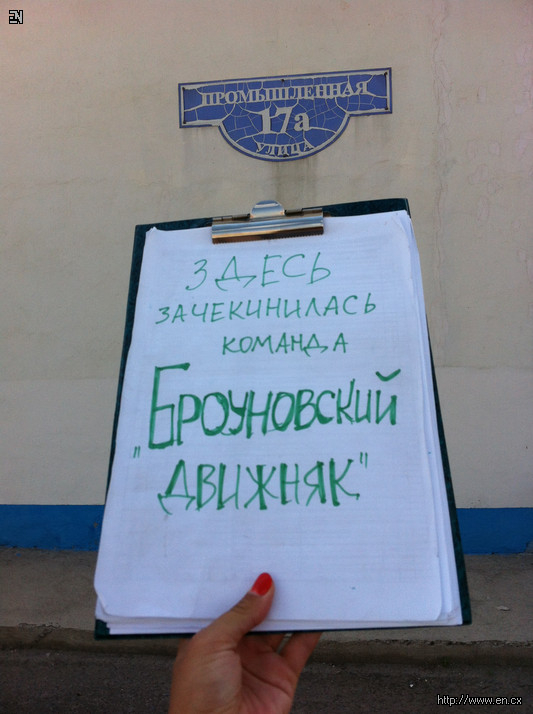 EN
ПРОМЫШЛЕННАЯ
17а
УЛИЦА
ЗДЕСЬ
ЗАЧЕКИНИЛАСЬ
КОМАНДА
„БРОУНОВСКИЙ
ДВИЖНЯК"
http://www.en.cx